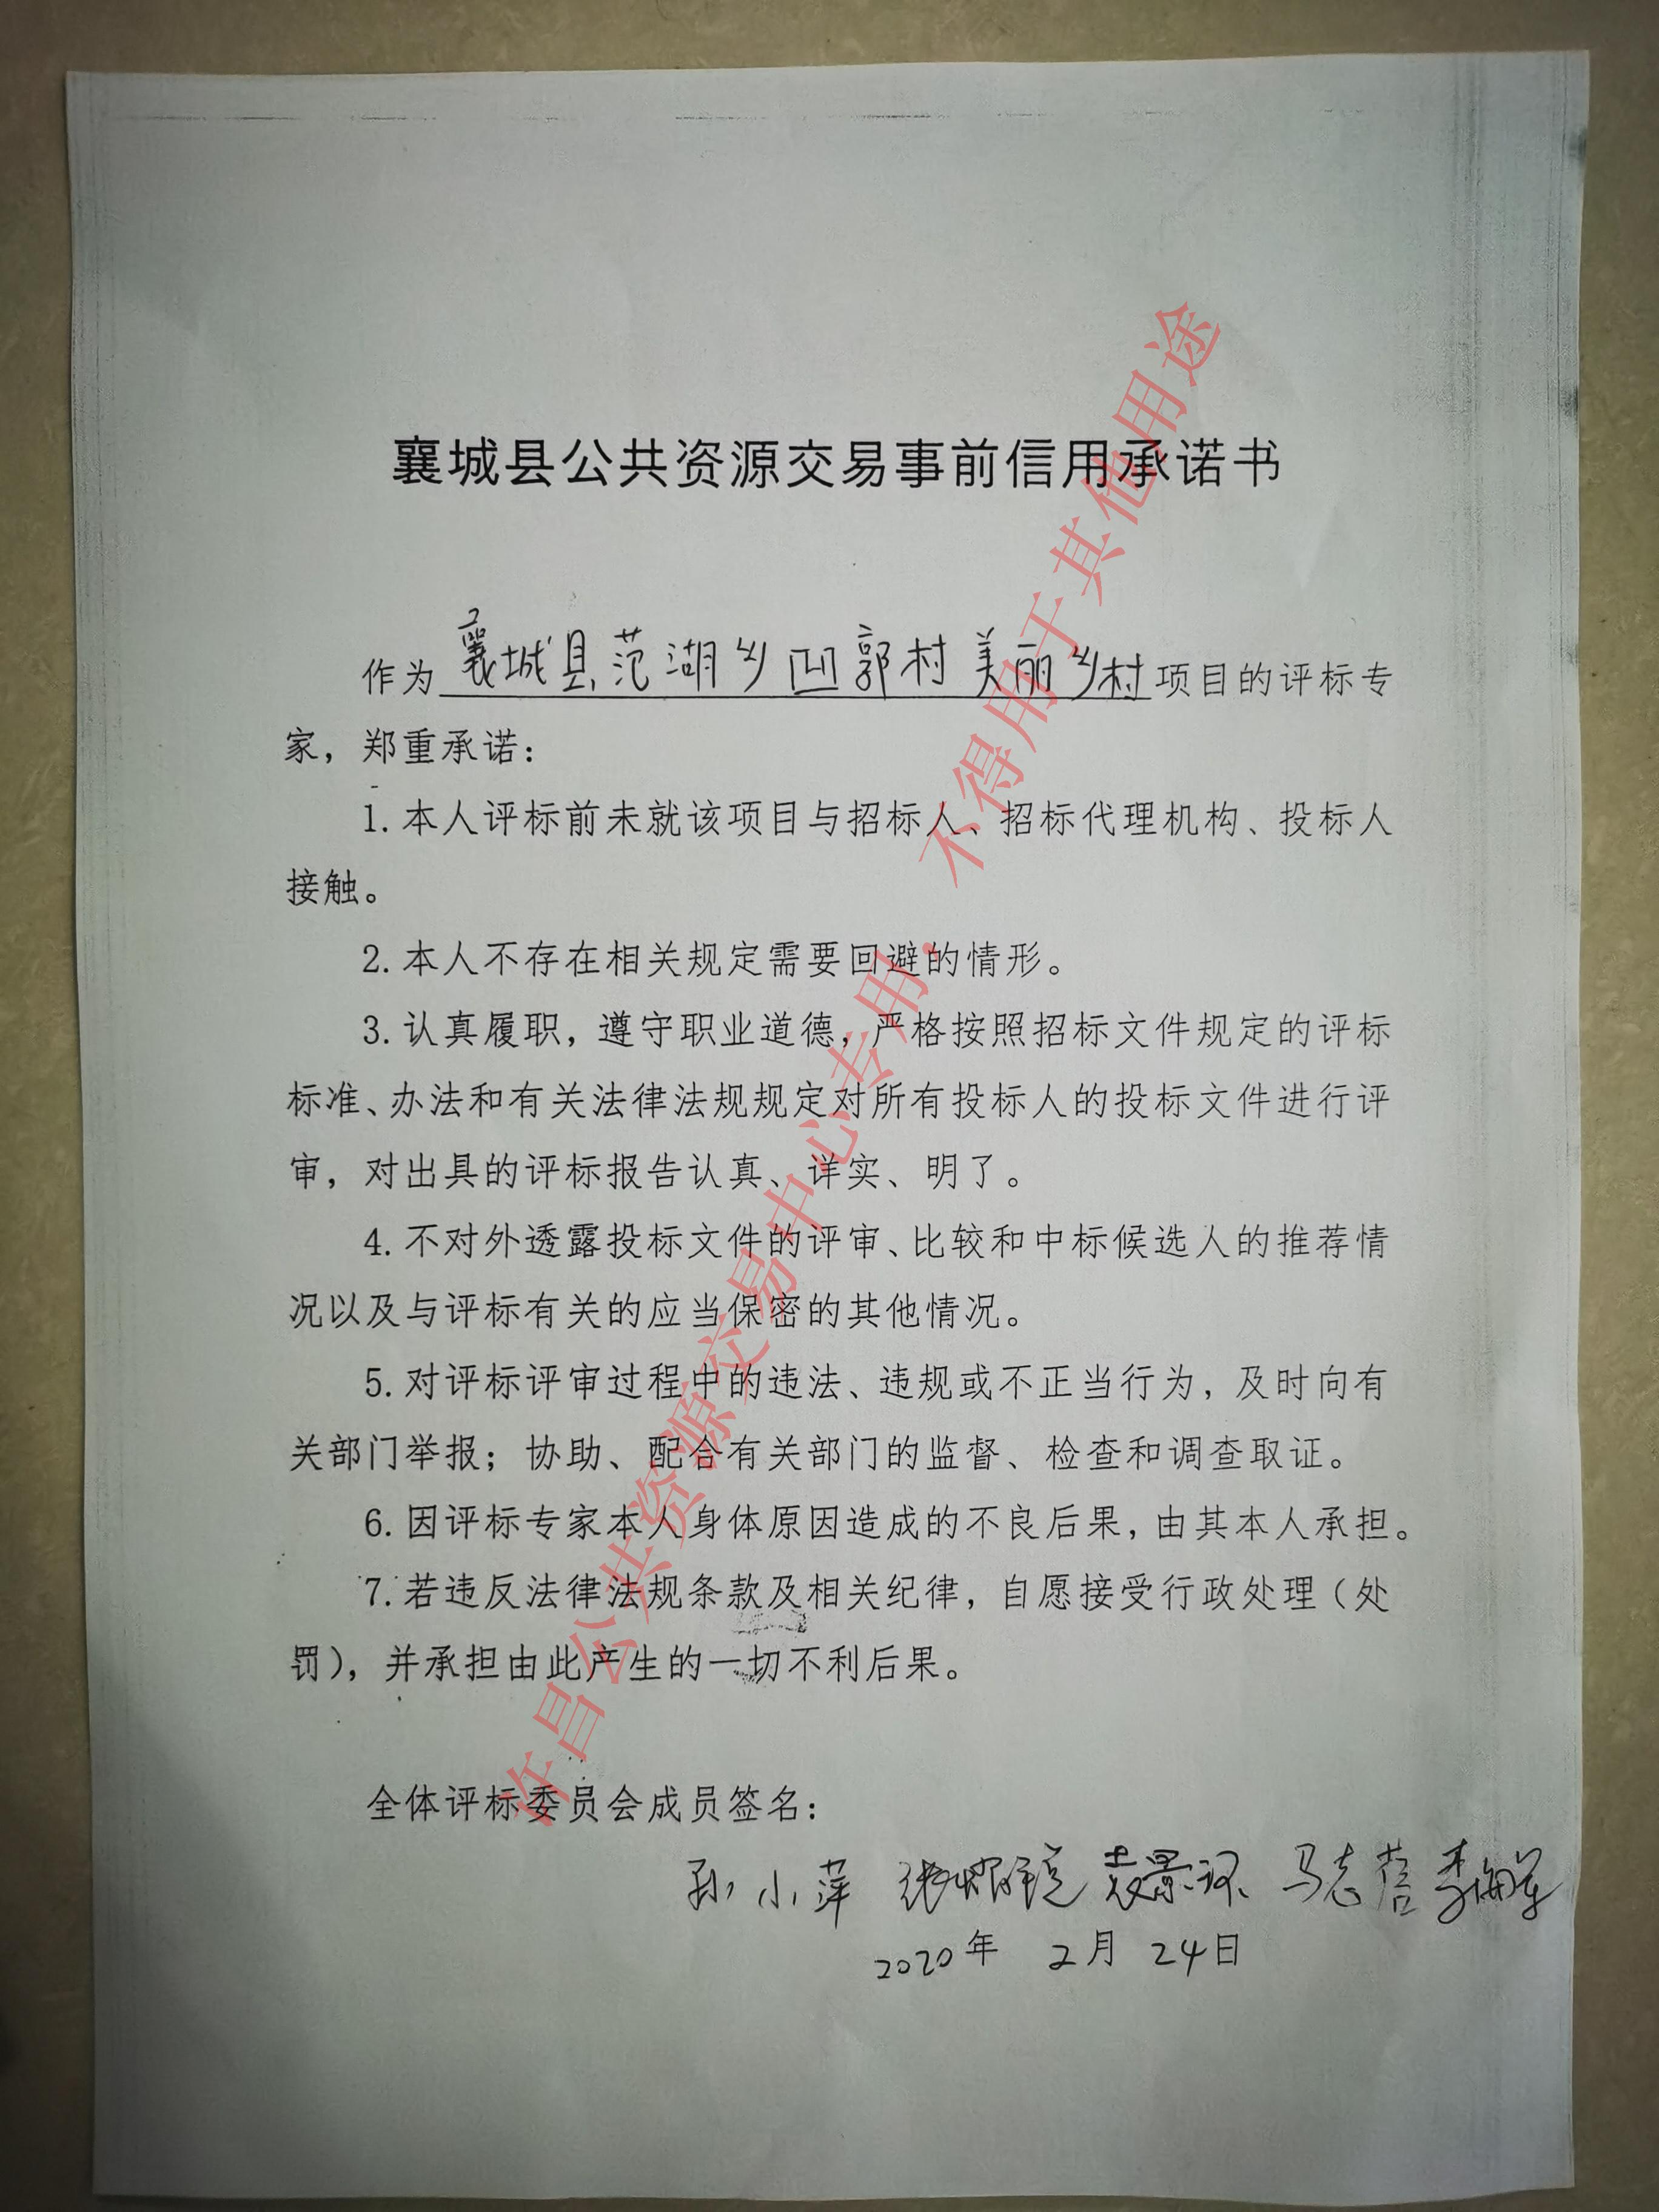 襄城县公共资源交易事前信用承诺书
作为襄城县范湖乡凹郭村美丽乡村项目的评标专
家，郑重承诺：
1.本人评标前未就该项目与招标人、招标代理机构、投标人
接触。
2.本人不存在相关规定需要回避的情形。
3.认真履职，遵守职业道德，严格按照招标文件规定的评标
标准、办法和有关法律法规规定对所有投标人的投标文件进行评
审，对出具的评标报告认真、详实、明了。
4.不对外透露投标文件的评审、比较和中标候选人的推荐情
况以及与评标有关的应当保密的其他情况。
5.对评标评审过程中的违法、违规或不正当行为，及时向有
关部门举报；协助、配合有关部门的监督、检查和调查取证。
6.因评标专家本人身体原因造成的不良后果，由其本人承担。
7.若违反法律法规条款及相关纪律，自愿接受行政处理（处
罚），并承担由此产生的一切不利后果。
全体评标委员会成员签名：
孙小萍 袁景环 马志
2020年 2月 24日
许昌公共资源交易中心专用，不得用于其他用途